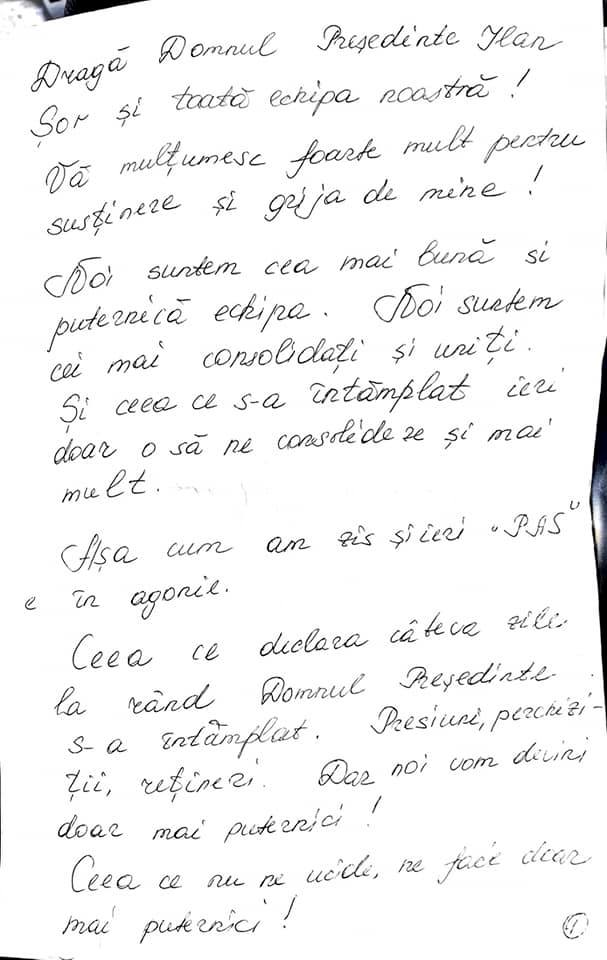 Dragă Domnul Președinte Ilan
Șor și toată echipa noastră!
Vă mulțumesc foarte mult pentru
susținere și grija de mine!
Noi suntem cea mai bună si
puternică echipa. Noi suntem
cei mai consolidați și uniți.
Și ceea ce s-a întâmplat ieri
doar o să ne consolideze și mai
mult.
Așa cum am zis și ieri „PAS"
e în agonie.
Ceea ce declara câteva zile
la rând Domnul Președinte
s-a întâmplat. Presiuni, perchizi-
ții, rețineri. Dar noi vom deveni
doar mai puternici!
Ceea ce nu ne ucide, ne face doar
mai puternici!
1